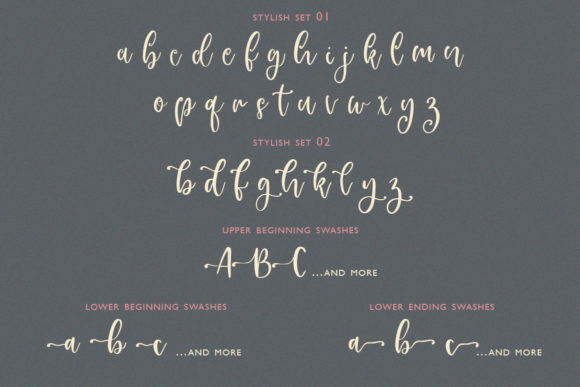 STYLISH SET 01
a b c d e f g h i j k l m n
o p q r s t u v w x y z
STYLISH SET 02
b d f g h k l y z
UPPER BEGINNING SWASHES
A B C ...AND MORE
LOWER BEGINNING SWASHES
a b c ...AND MORE
LOWER ENDING SWASHES
a b c ...AND MORE